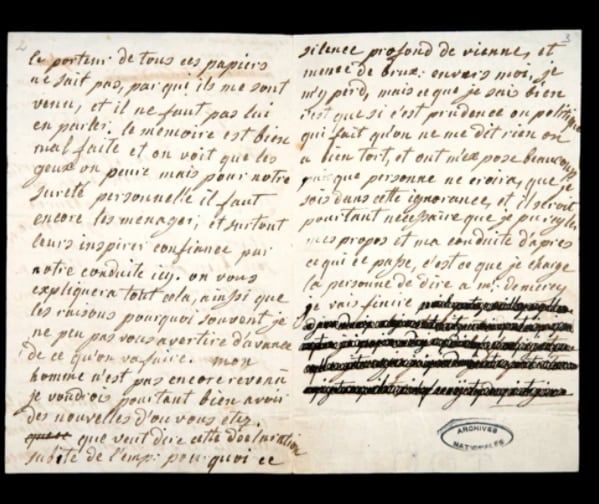 2
le porteur de tous ces papiers
ne sait pas, par qui ils me sont
venu, et il ne faut pas lui
en parler. le mémoire est bien
mal faite et on voit que les
geux on peure mais pour notre
sureté personnelle il faut
encore les menager, et surtout
leurs inspirer confiance par
notre conduite icy. on vous
expliquera tout cela, ainsi que
les raisons pourquoi souvent je
ne peu pas vous avertire d'avance
de ce qu'on va faire. mon
homme n'est pas encore revenu
je voudrois pourtant bien avoir
des nouvelles d'ou vous êtez.
que veut dire cette declaration
subite de l'emp: pourquoi ce
3
silence profond de vienne, et
meme de brux: envers moi, je
m'y perd, mais ce que je sais bien
c'est que si c'est prudence ou politique
qui fait qu'on ne me dit rien on
a bien tort, et ont m'expose beaucoup
puisque personne ne croira, que je
sois dans cette ignorance, et il seroit
pourtant nécessaire que je puisse regler
mes propos et ma conduite d'apres
ce qui ce passe, c'est ce que je charge
la personne de dire a m: de mercy
je vais finire
ARCHIVES
NATIONALES